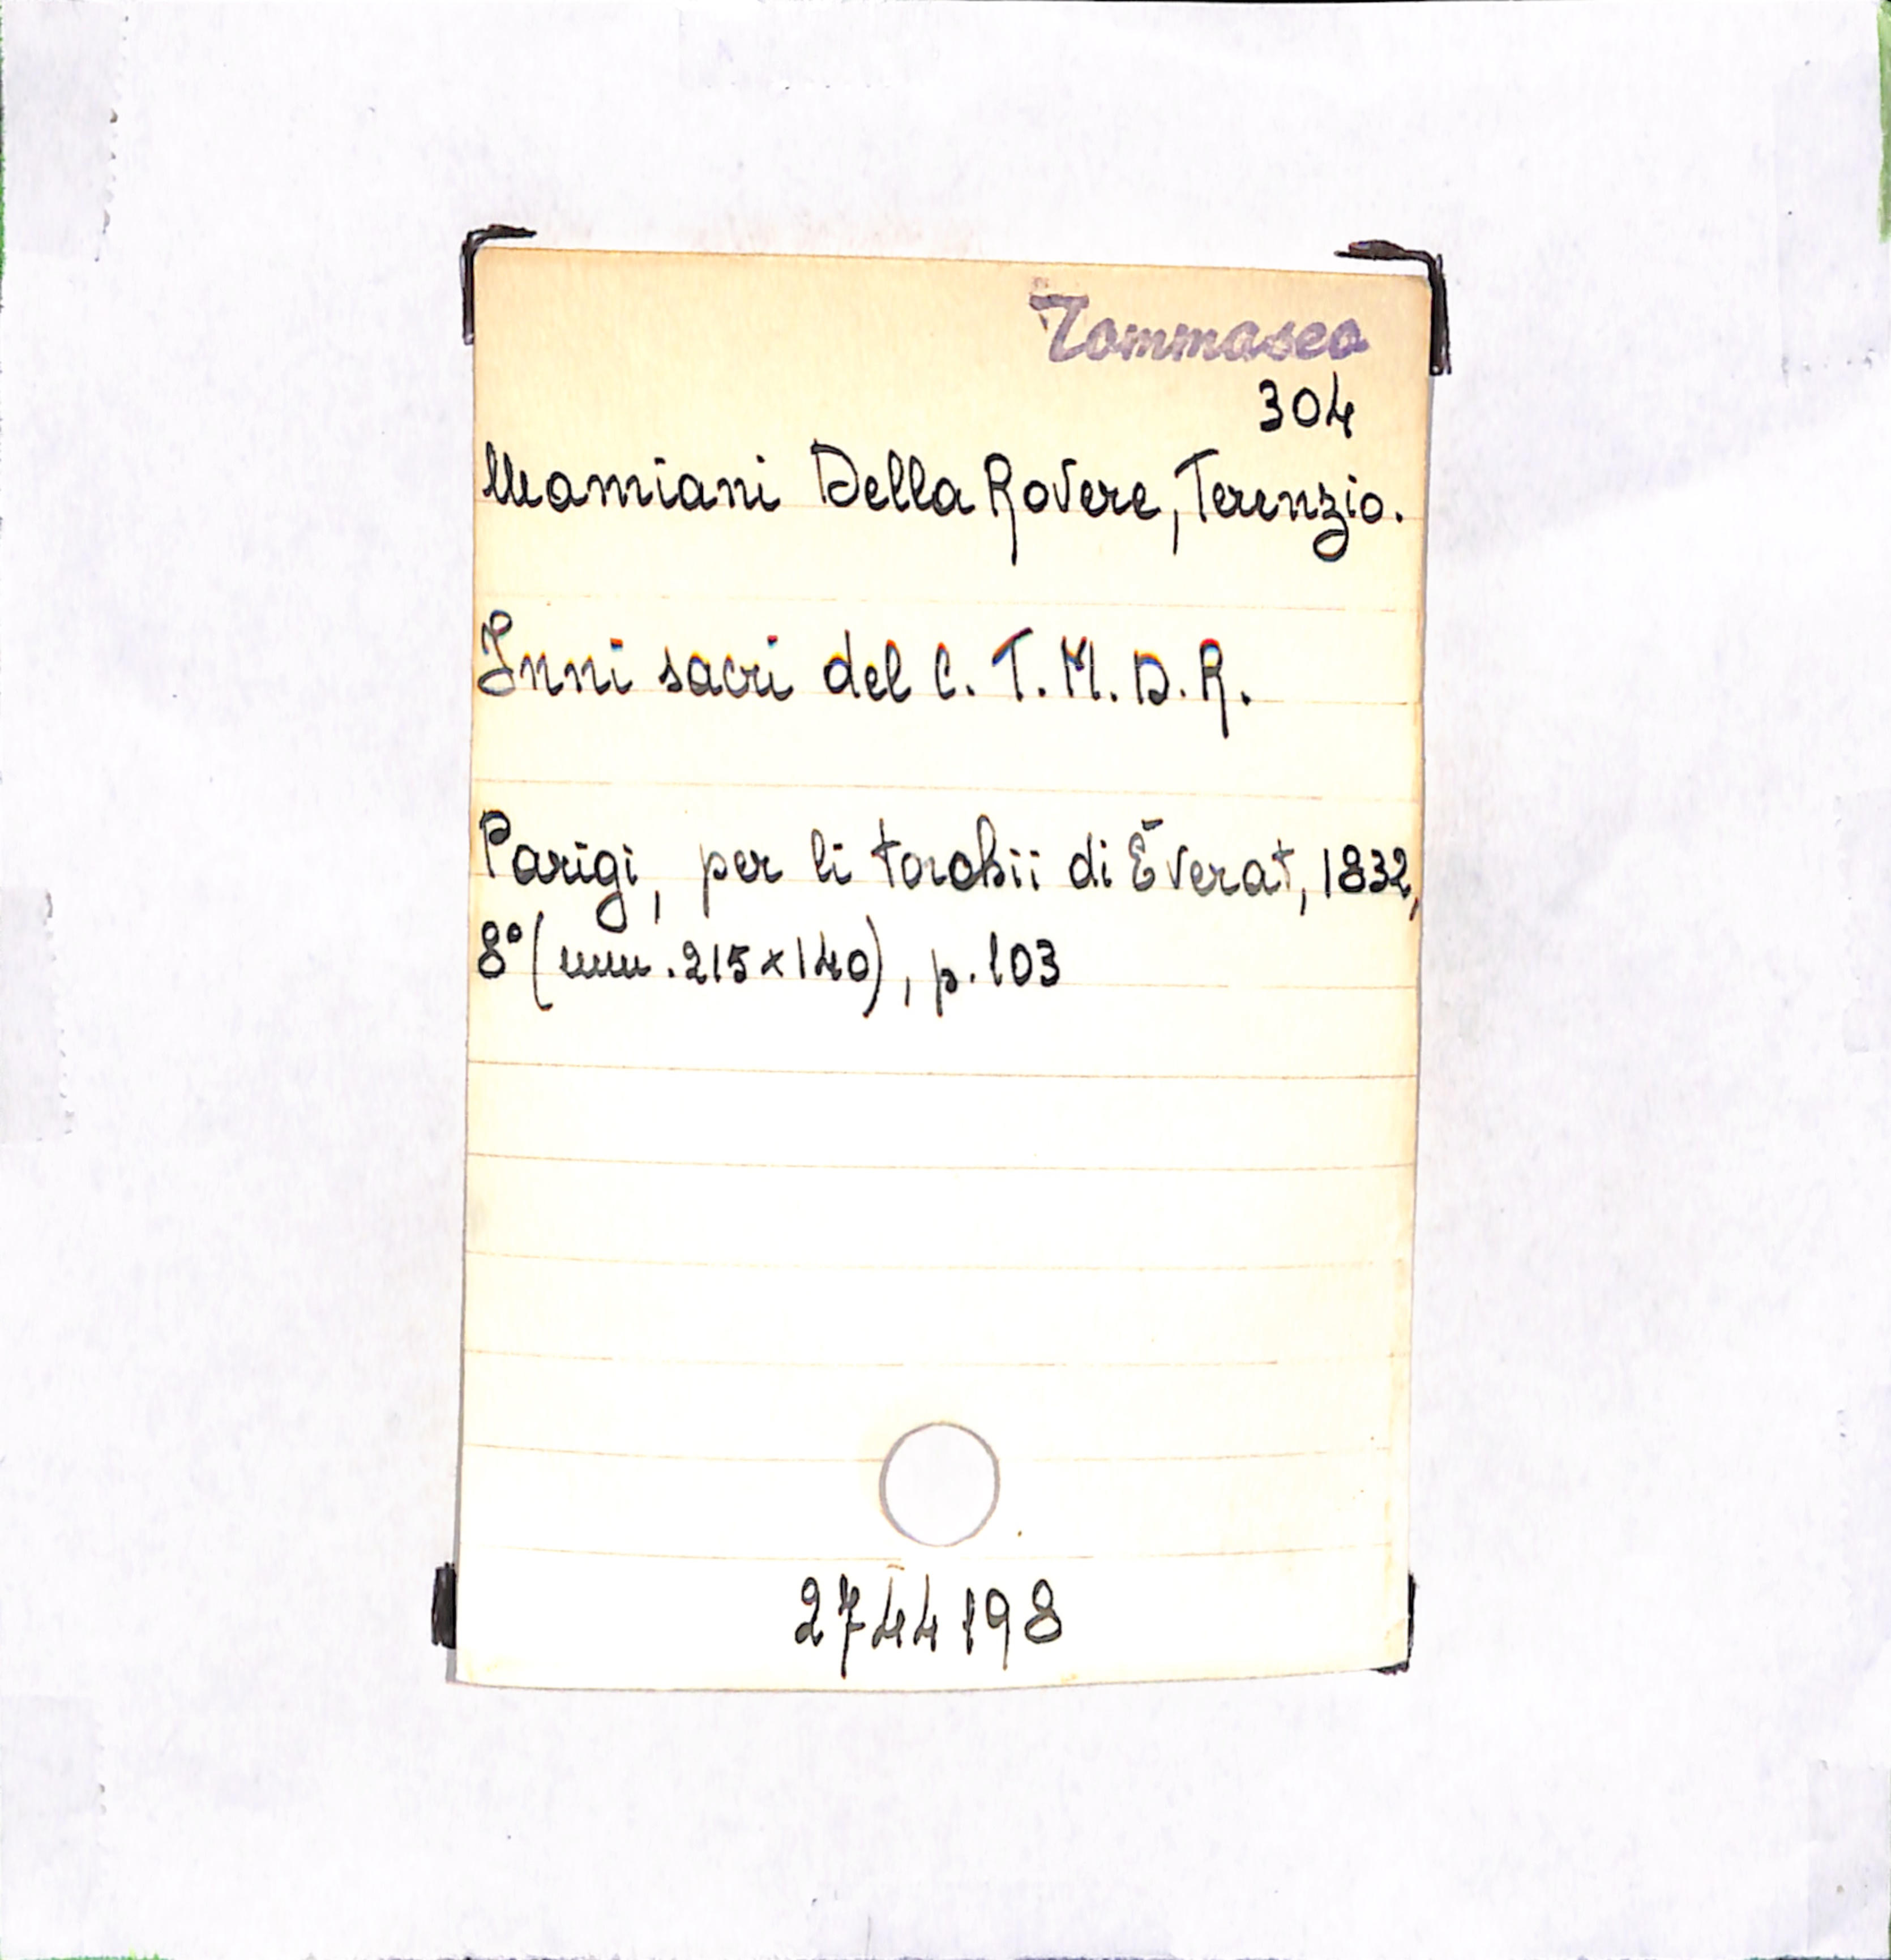 Tommaseo
304
Mamiani Della Rovere, Terenzio.
Inni sacri del C. T. M. D. R.
Parigi, per li torchii di Éverat, 1832,
8° (mm. 215×140), p. 103
2744198